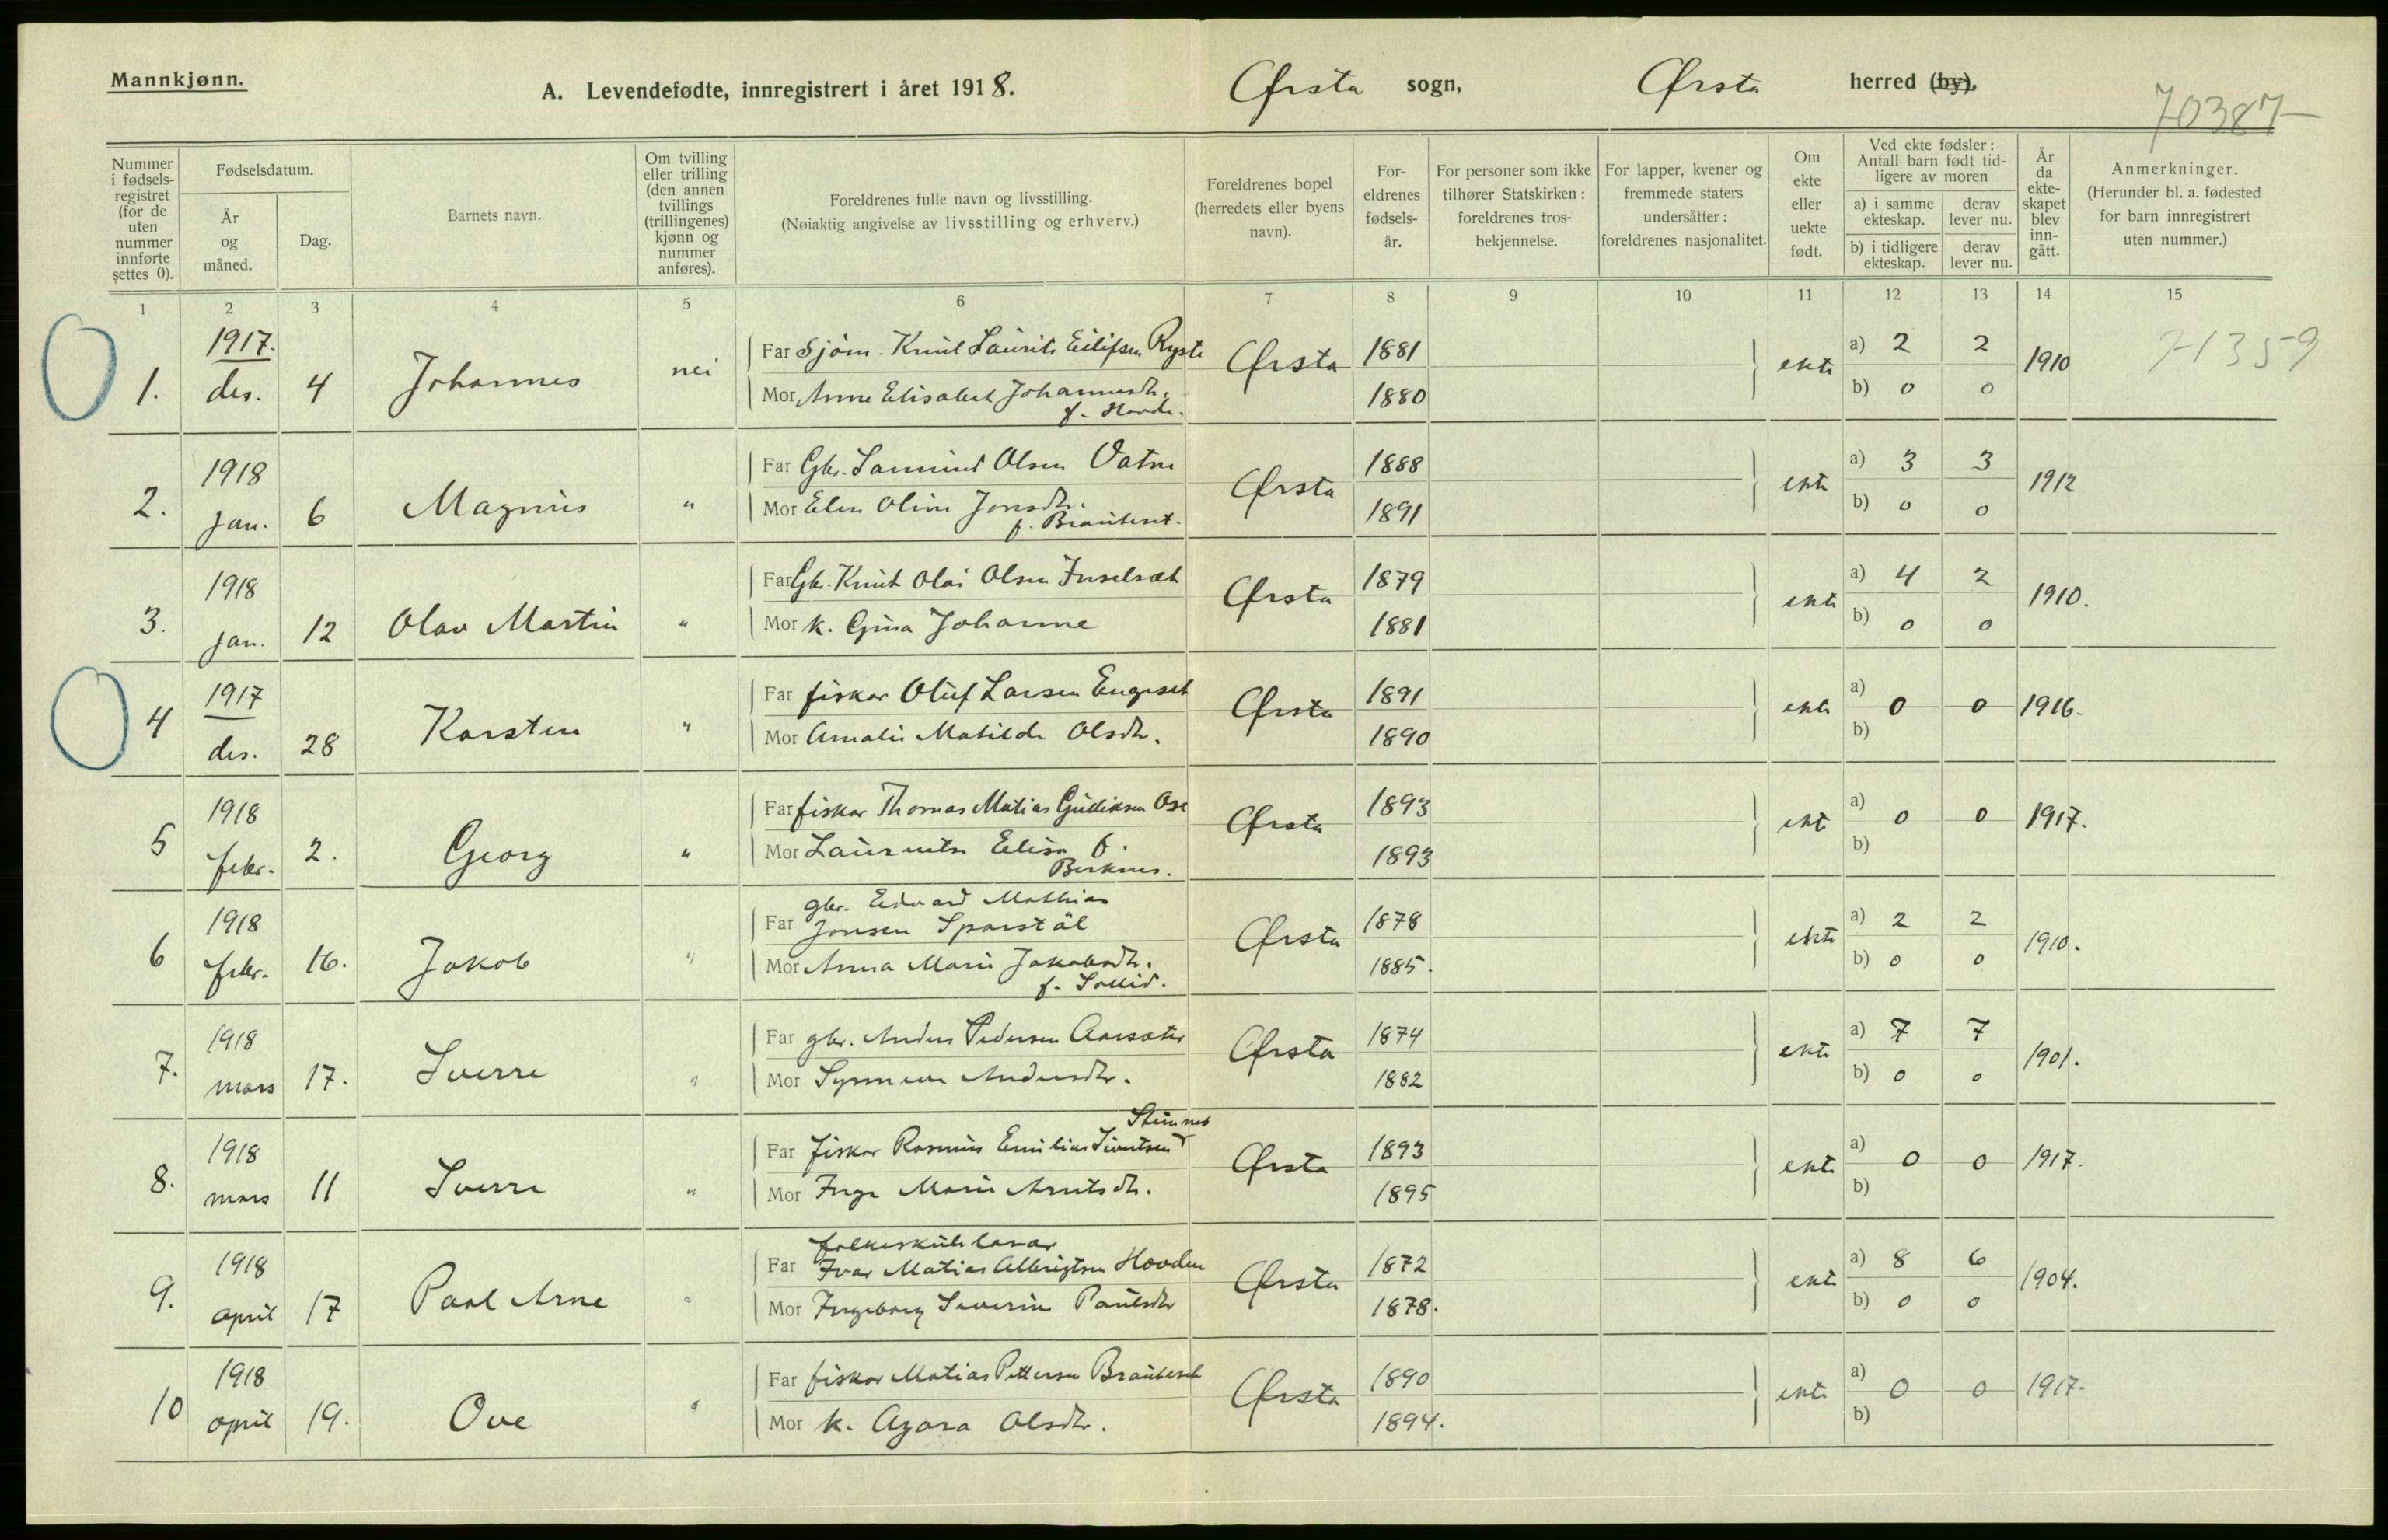 Mannkjønn.
A. Levendefødte, innregistrert i året 1918.
Ørsta sogn,
Ørsta herred (by).
70387
Nummer i fødselsregistret (for de uten nummer innførte settes 0).
Fødselsdatum.
År og måned.
Dag.
Barnets navn.
Om tvilling eller trilling (den annen tvillings (trillingenes) kjønn og nummer anføres).
Foreldrenes fulle navn og livsstilling.
(Nøiaktig angivelse av livsstilling og erhverv.)
Foreldrenes bopel (herredets eller byens navn).
Foreldrenes fødselsår.
For personer som ikke tilhører Statskirken: foreldrenes trosbekjennelse.
For lapper, kvener og fremmede staters undersåtter: foreldrenes nasjonalitet.
Om ekte eller uekte født.
Ved ekte fødsler: Antall barn født tidligere av moren
a) i samme ekteskap.
derav lever nu.
b) i tidligere ekteskap.
derav lever nu.
År da ekteskapet blev inngått.
Anmerkninger.
(Herunder bl. a. fødested for barn innregistrert uten nummer.)
1 2 3 4 5 6 7 8 9 10 11 12 13 14 15
1. 1917. des. 4 Johannes nei Far Sjøm. Knut Laurits Eilifsen Ryste Ørsta 1881 ekte a) 2 2 1910 71359
Mor Anne Elisabet Johannesdtr. f. Hovde. 1880 b) 0 0
2. 1918 jan. 6 Magnus " Far Gbr. Samund Olsen Vatne Ørsta 1888 ekte a) 3 3 1912
Mor Elen Oline Jonsdtr. f. Brauteset. 1891 b) 0 0
3. 1918 jan. 12 Olav Martin " Far Gbr. Knut Olai Olsen Inselset Ørsta 1879 ekte a) 4 2 1910.
Mor k. Gina Johanne 1881 b) 0 0
4 1917 des. 28 Karsten " Far fiskar Oluf Larsen Engeset Ørsta 1891 ekte a) 0 0 1916.
Mor Amalie Matilde Olsdtr. 1890 b)
5 1918 febr. 2. Georg " Far fiskar Thomas Matias Gudleiksen Ose Ørsta 1893 ekte a) 0 0 1917.
Mor Elisa f. 1893 b)
6 1918 febr. 16. Jakob " Far gbr. Edvard Mathias Jonsen Ørsta 1878 ekte a) 2 2 1910.
Mor Anna Marie Jakobsdtr. f. 1885. b) 0 0
7. 1918 mars 17. Sverre " Far gbr. Anders Pedersen Aarsæter Ørsta 1874 ekte a) 7 7 1901.
Mor Synneve Andersdtr. 1882 b) 0 0
8. 1918 mars 11 Sverre " Far fiskar Rasmus Emilius Sivertsen Steinnes Ørsta 1893 ekte a) 0 0 1917.
Mor Inga Marie Arntsdtr. 1895 b)
9. 1918 april 17 Paal Arne " Far folkeskulelærar Ivar Matias Albrigtsen Hovden Ørsta 1872 ekte a) 8 6 1904.
Mor Ingeborg Severine Paulsdtr 1878. b) 0 0
10 1918 april 19. Ove " Far fiskar Matias Pettersen Brauteset Ørsta 1890 ekte a) 0 0 1917.
Mor k. Agara Olsdtr. 1894. b)